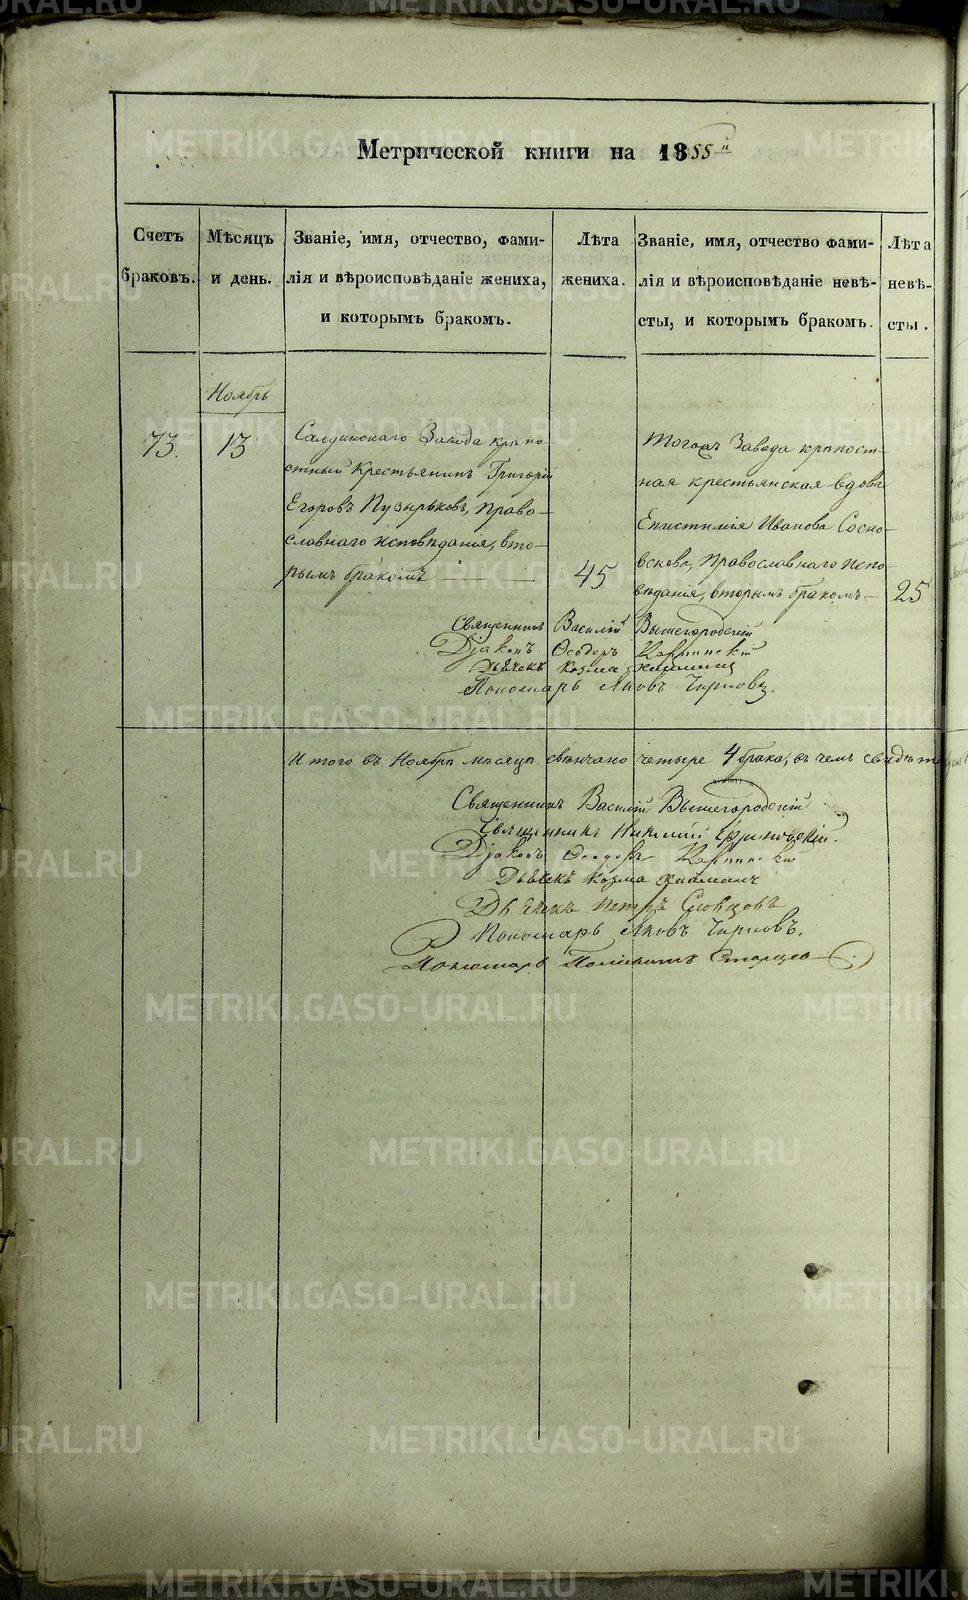 Метрической книги на 1855й
Счетъ браковъ.
Мѣсяцъ и день.
Званіе, имя, отчество, фами-
лія и вѣроисповѣданіе жениха,
и которымъ бракомъ.
Лѣта жениха.
Званіе, имя, отчество фами-
лія и вѣроисповѣданіе невѣ-
сты, и которымъ бракомъ.
Лѣта невѣ-
сты.
Ноябрь
73.
13
Салдинскаго Завода крѣпо-
стный крестьянинъ Григорій
Егоровъ Пузырьковъ, Право-
славнаго исповѣданія, вто-
рымъ бракомъ
45
Тогожъ Завода крѣпост-
ная крестьянская вдова
Епистимія Иванова Сосно-
вскова, Православнаго испо-
вѣданія, вторымъ бракомъ
25
Священникъ Василій Вышегородскій
Діаконъ Ѳеодоръ Карпинскій
Дьячекъ Козма
Пономарь Яковъ Чирковъ.
Итого въ Ноябрѣ мѣсяцѣ свѣнчано четыре 4 брака, въ чемъ
Священникъ Василій Вышегородскій
Священникъ
Діаконъ Ѳеодоръ Карпинскій
Дьячекъ Козма
Дьячекъ Петръ Словцовъ
Пономарь Яковъ Чирковъ.
Пономарь Старцевъ
METRIKI.GASO-URAL.RU